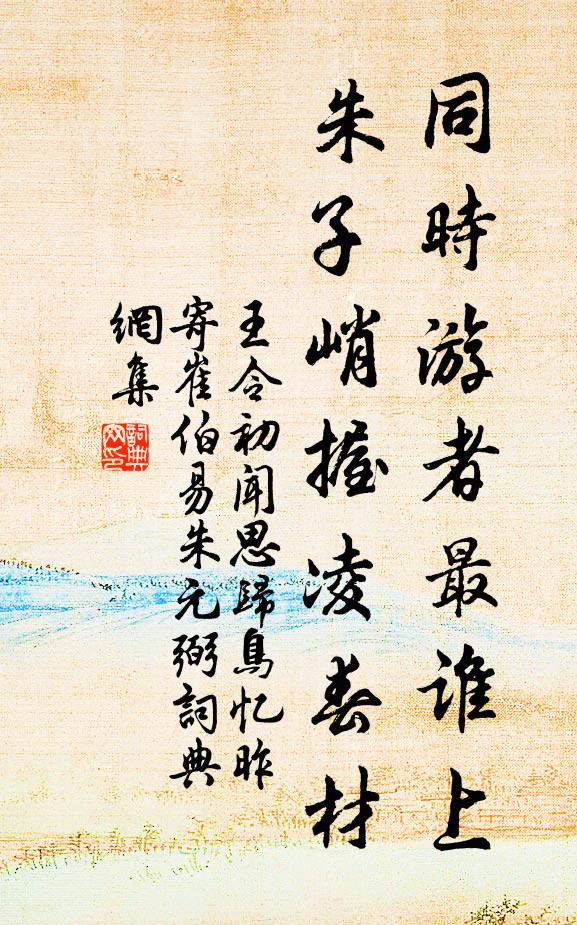 同時游者最谁上
朱子峭握凌春材
王令初闻思歸鳥忆昨
寄崔伯易朱元弼詞典
網集
詞典